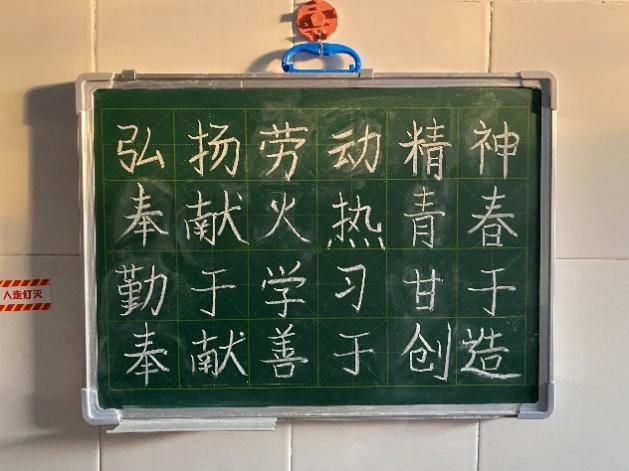 弘扬劳动精神
奉献火热青春
勤于学习甘于
奉献善于创造
人走灯灭